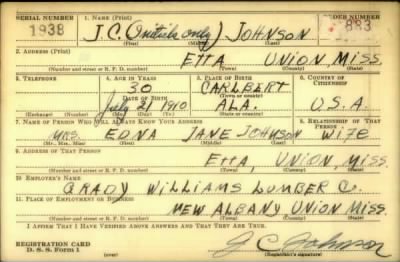 SERIAL NUMBER 1. NAME (Print) ORDER NUMBER
1938 J.C. (initials only) JOHNSON 883
(First) (Middle) (Last)
2. ADDRESS (Print)
ETTA UNION, MISS.
(Number and street or R. F. D. number) (Town) (County) (State)
3. TELEPHONE 4. AGE IN YEARS 5. PLACE OF BIRTH 6. COUNTRY OF CITIZENSHIP
30 CARLBERT
DATE OF BIRTH (Town or county)
July 21 1910 ALA. U.S.A.
(Exchange) (Number) (Mo.) (Day) (Yr.) (State or country)
7. NAME OF PERSON WHO WILL ALWAYS KNOW YOUR ADDRESS 8. RELATIONSHIP OF THAT PERSON
MRS. EDNA JANE JOHNSON WIFE
(Mr., Mrs., Miss) (First) (Middle) (Last)
9. ADDRESS OF THAT PERSON
ETTA, UNION, MISS.
(Number and street or R. F. D. number) (Town) (County) (State)
10. EMPLOYER'S NAME
GRADY WILLIAMS LUMBER CO.
11. PLACE OF EMPLOYMENT OR BUSINESS
NEW ALBANY UNION MISS.
(Number and street or R. F. D. number) (Town) (County) (State)
I AFFIRM THAT I HAVE VERIFIED ABOVE ANSWERS AND THAT THEY ARE TRUE.
REGISTRATION CARD
D. S. S. Form 1 (over) J C Johnson
(Registrant's signature)